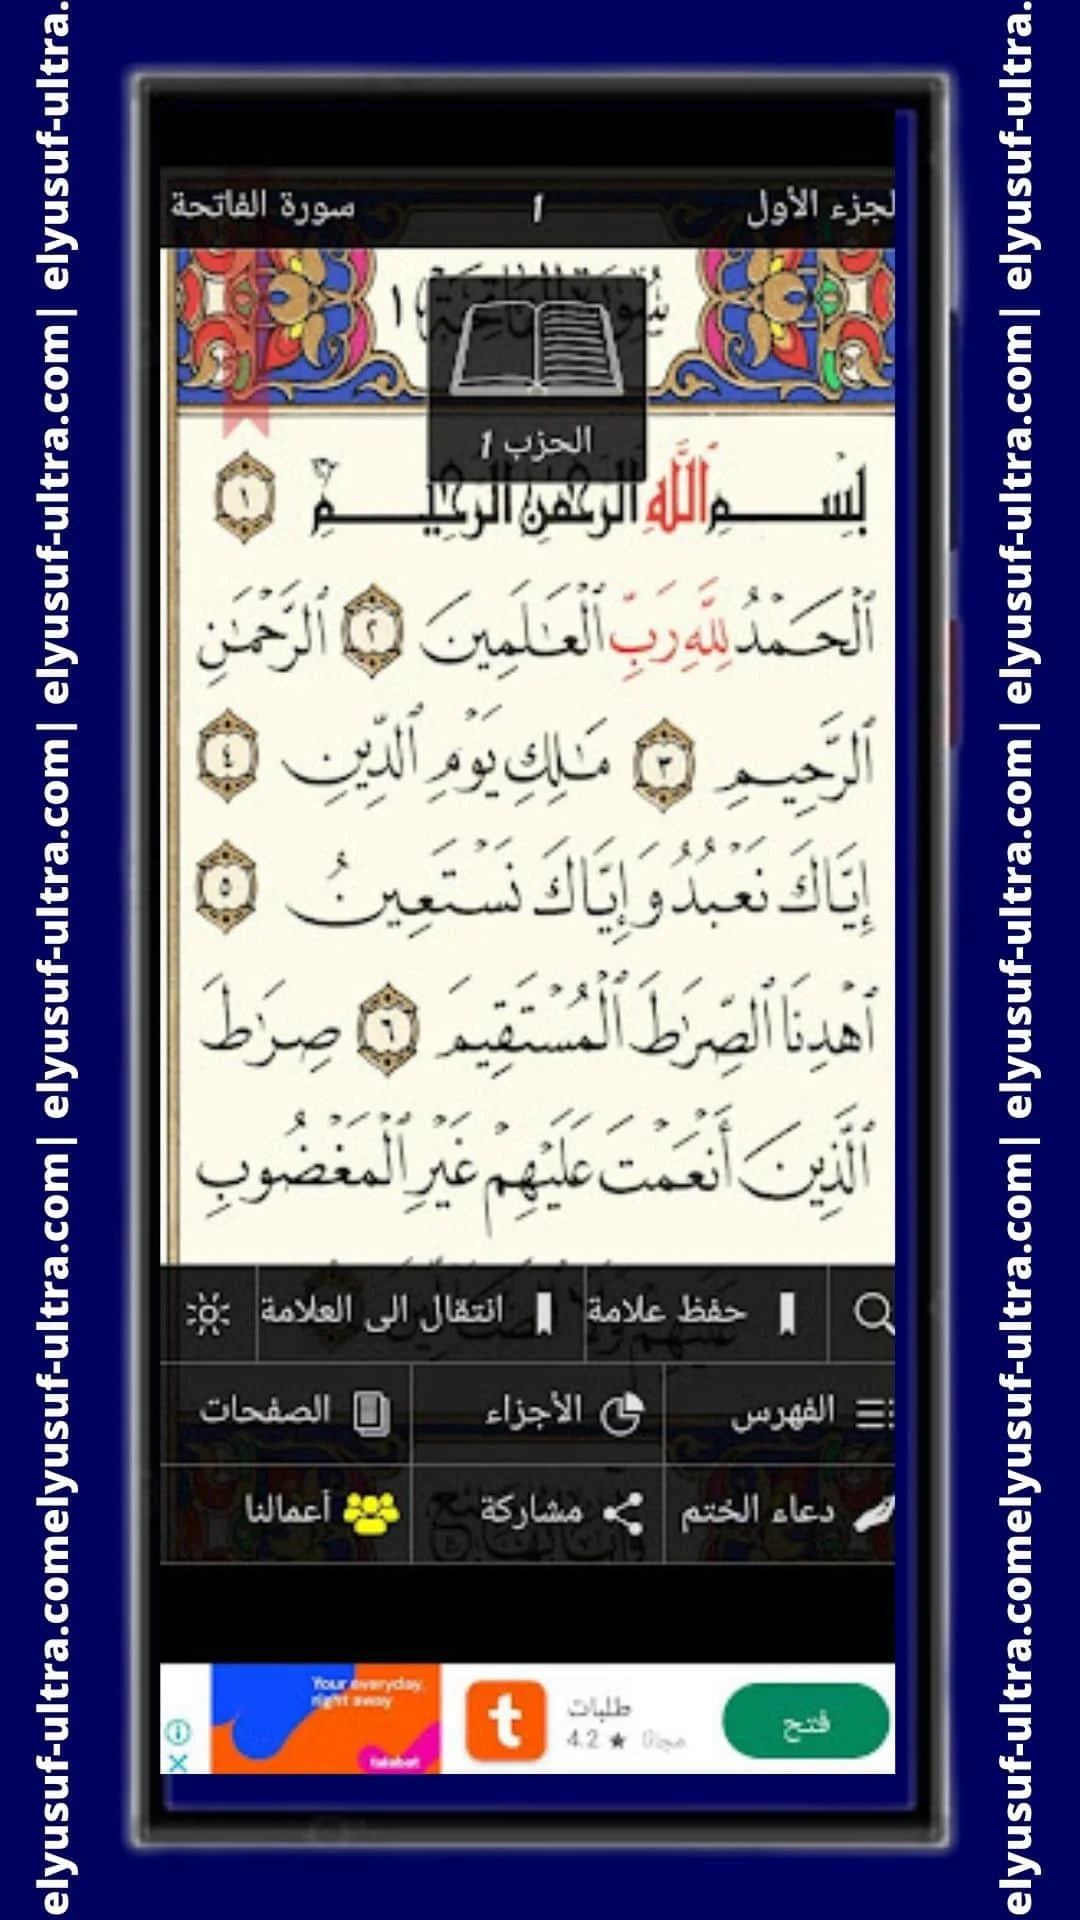 elyusuf-ultra.comelyusuf-ultra.com| elyusuf-ultra.com| elyusuf-ultra.com| elyusuf-ultra.
لجزء الأول 1 سورة الفاتحة
سُورَةُ الفَاتِحَةِ ١
الحزب 1
بِسْمِ ٱللَّهِ ٱلرَّحْمَٰنِ ٱلرَّحِيمِ ١
ٱلْحَمْدُ لِلَّهِ رَبِّ ٱلْعَٰلَمِينَ ٢ ٱلرَّحْمَٰنِ
ٱلرَّحِيمِ ٣ مَٰلِكِ يَوْمِ ٱلدِّينِ ٤
إِيَّاكَ نَعْبُدُ وَإِيَّاكَ نَسْتَعِينُ ٥
ٱهْدِنَا ٱلصِّرَٰطَ ٱلْمُسْتَقِيمَ ٦ صِرَٰطَ
ٱلَّذِينَ أَنْعَمْتَ عَلَيْهِمْ غَيْرِ ٱلْمَغْضُوبِ
حفظ علامة انتقال الى العلامة
الفهرس الأجزاء الصفحات
دعاء الختم مشاركة أعمالنا
Your everyday,
right away
talabat
t
طلبات
4.2 ★ مجانًا
فتح
elyusuf-ultra.comelyusuf-ultra.com| elyusuf-ultra.com| elyusuf-ultra.com| elyusuf-ultra.